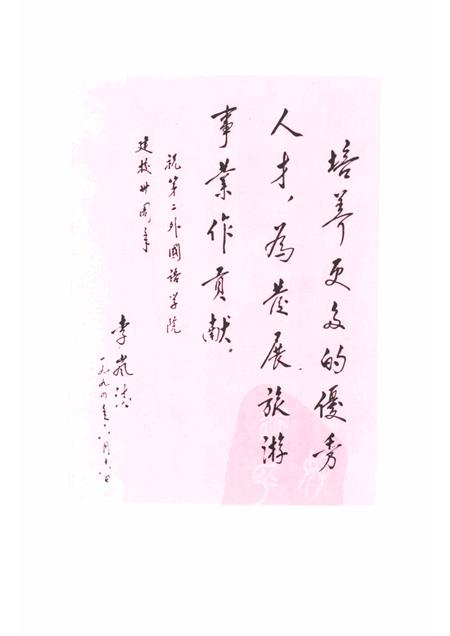 培养更多的優秀
人才，為发展旅游
事業作貢献。
祝第二外國语学院
建校卅周年
李岚清
一九九四年六月十八日